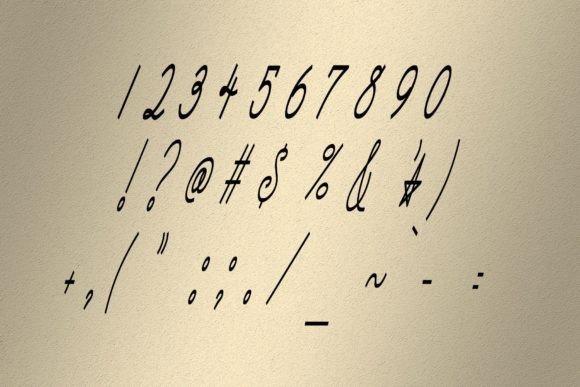 1 2 3 4 5 6 7 8 9 0
! ? @ # $ % & * )
+ , ( " : ; . / _ ~ ` - =